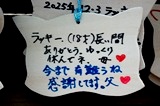 2025年12.3ラッキー
ラッキー、(18才)長い間
ありがとう。ゆっくり
休んでネ。母♥
今まで有難うね
感謝してます。父♥